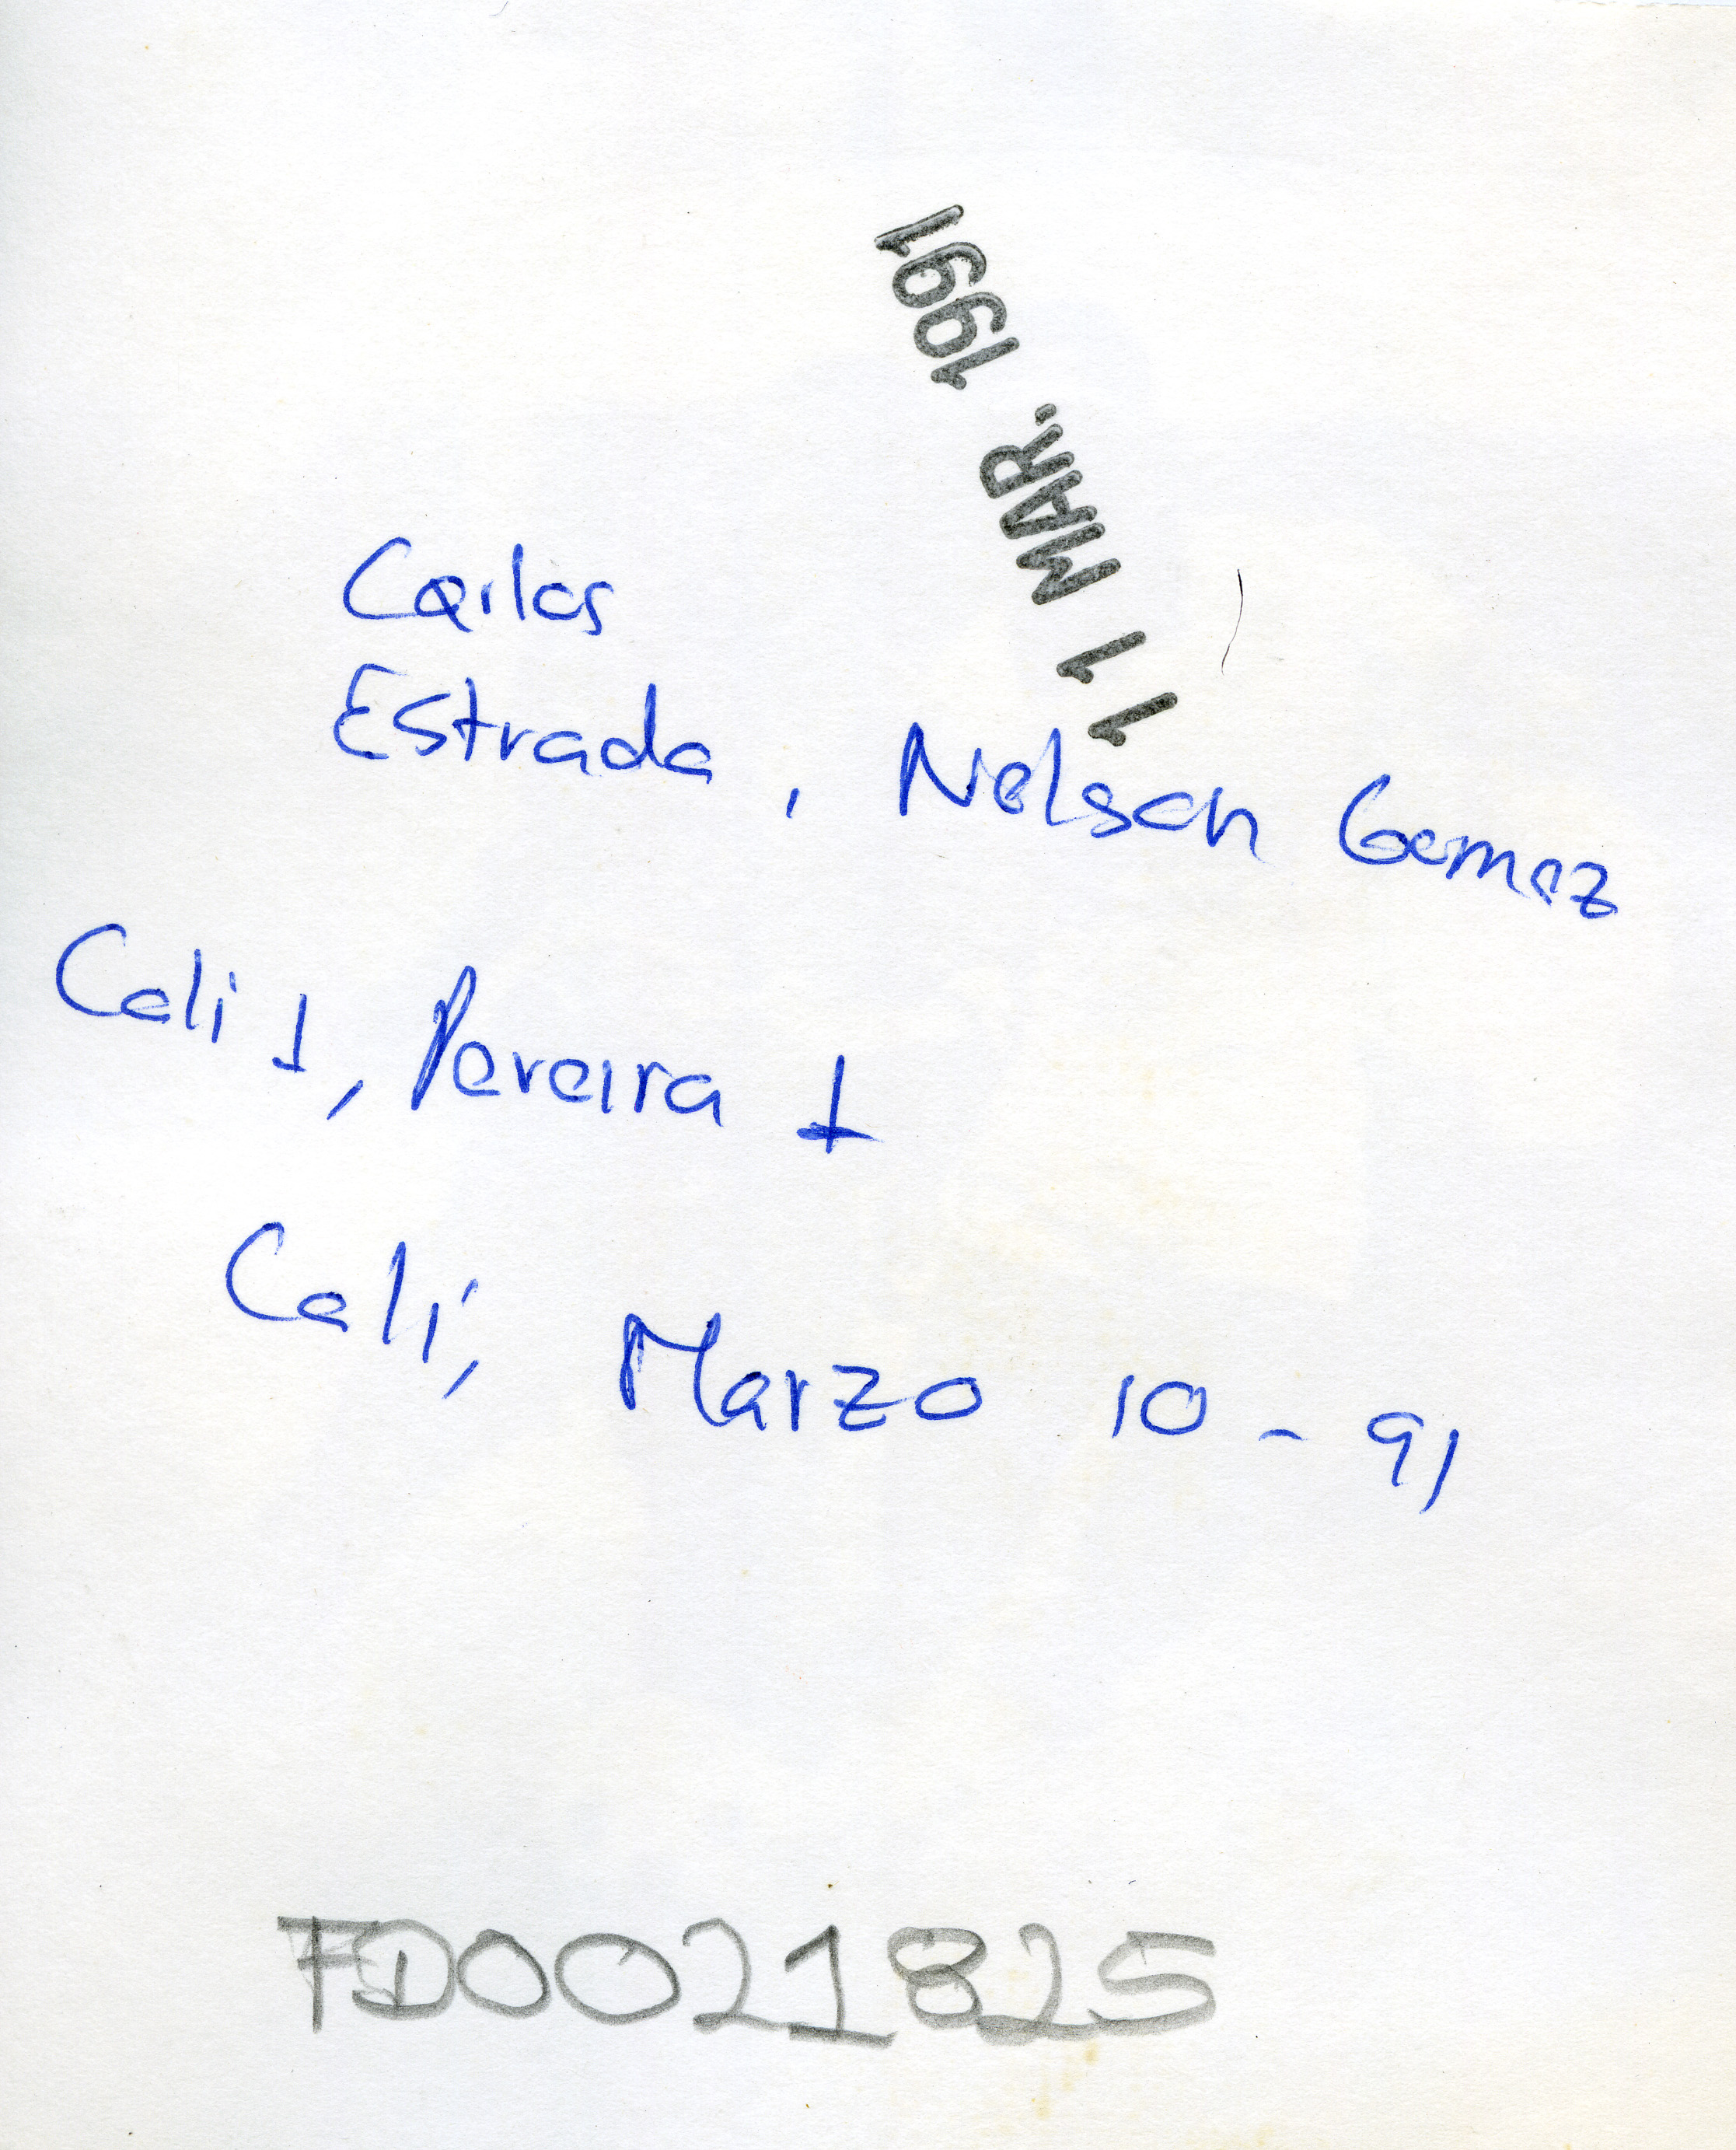 11 MAR. 1991
Carlos
Estrada, Nelson Gomez
Cali 1, Pereira 1
Cali, Marzo 10 - 91
FD0021825